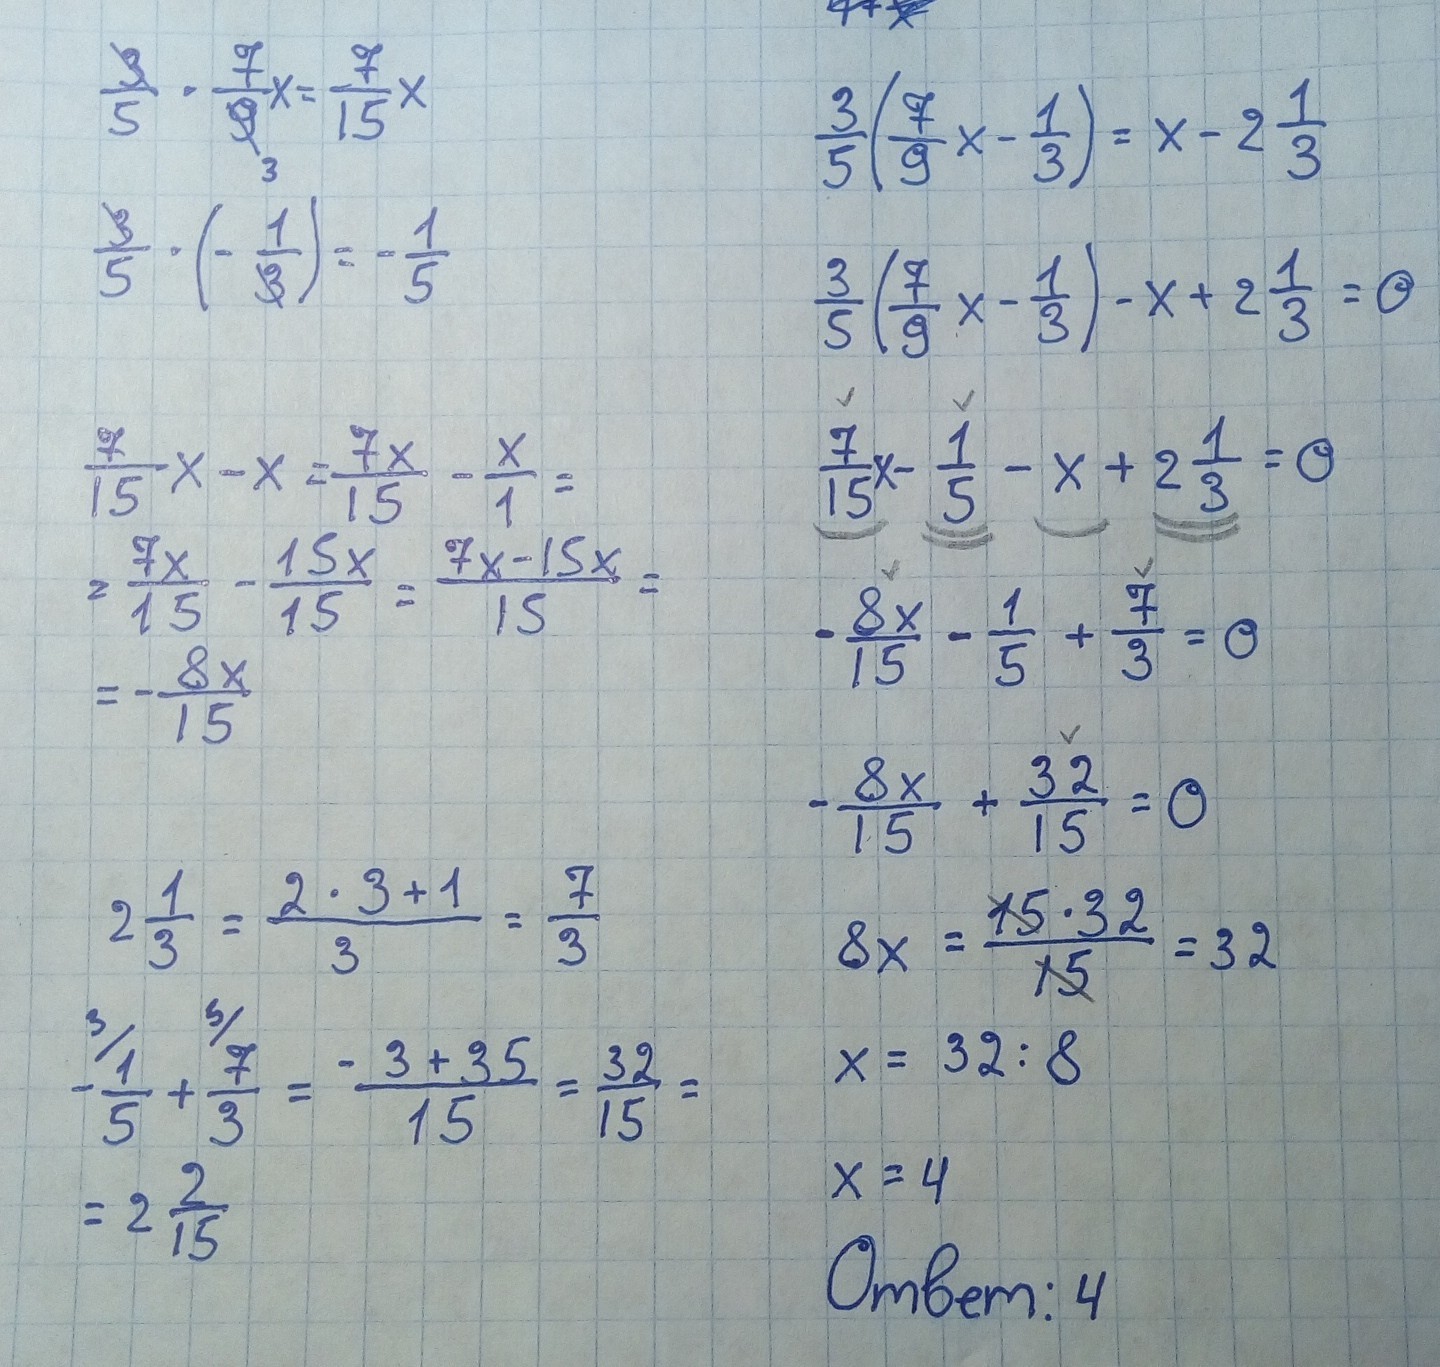 3/5 · 7/9 x = 7/15 x
3
3/5 · (- 1/3) = - 1/5
7/15 x - x = 7x/15 - x/1 =
= 7x/15 - 15x/15 = 7x-15x/15 =
= - 8x/15
2 1/3 = 2·3+1/3 = 7/3
3/ 5/
- 1/5 + 7/3 = -3+35/15 = 32/15 =
= 2 2/15
3/5 (7/9 x - 1/3) = x - 2 1/3
3/5 (7/9 x - 1/3) - x + 2 1/3 = 0
7/15 x - 1/5 - x + 2 1/3 = 0
- 8x/15 - 1/5 + 7/3 = 0
- 8x/15 + 32/15 = 0
8x = 15·32/15 = 32
x = 32:8
x = 4
Ответ: 4